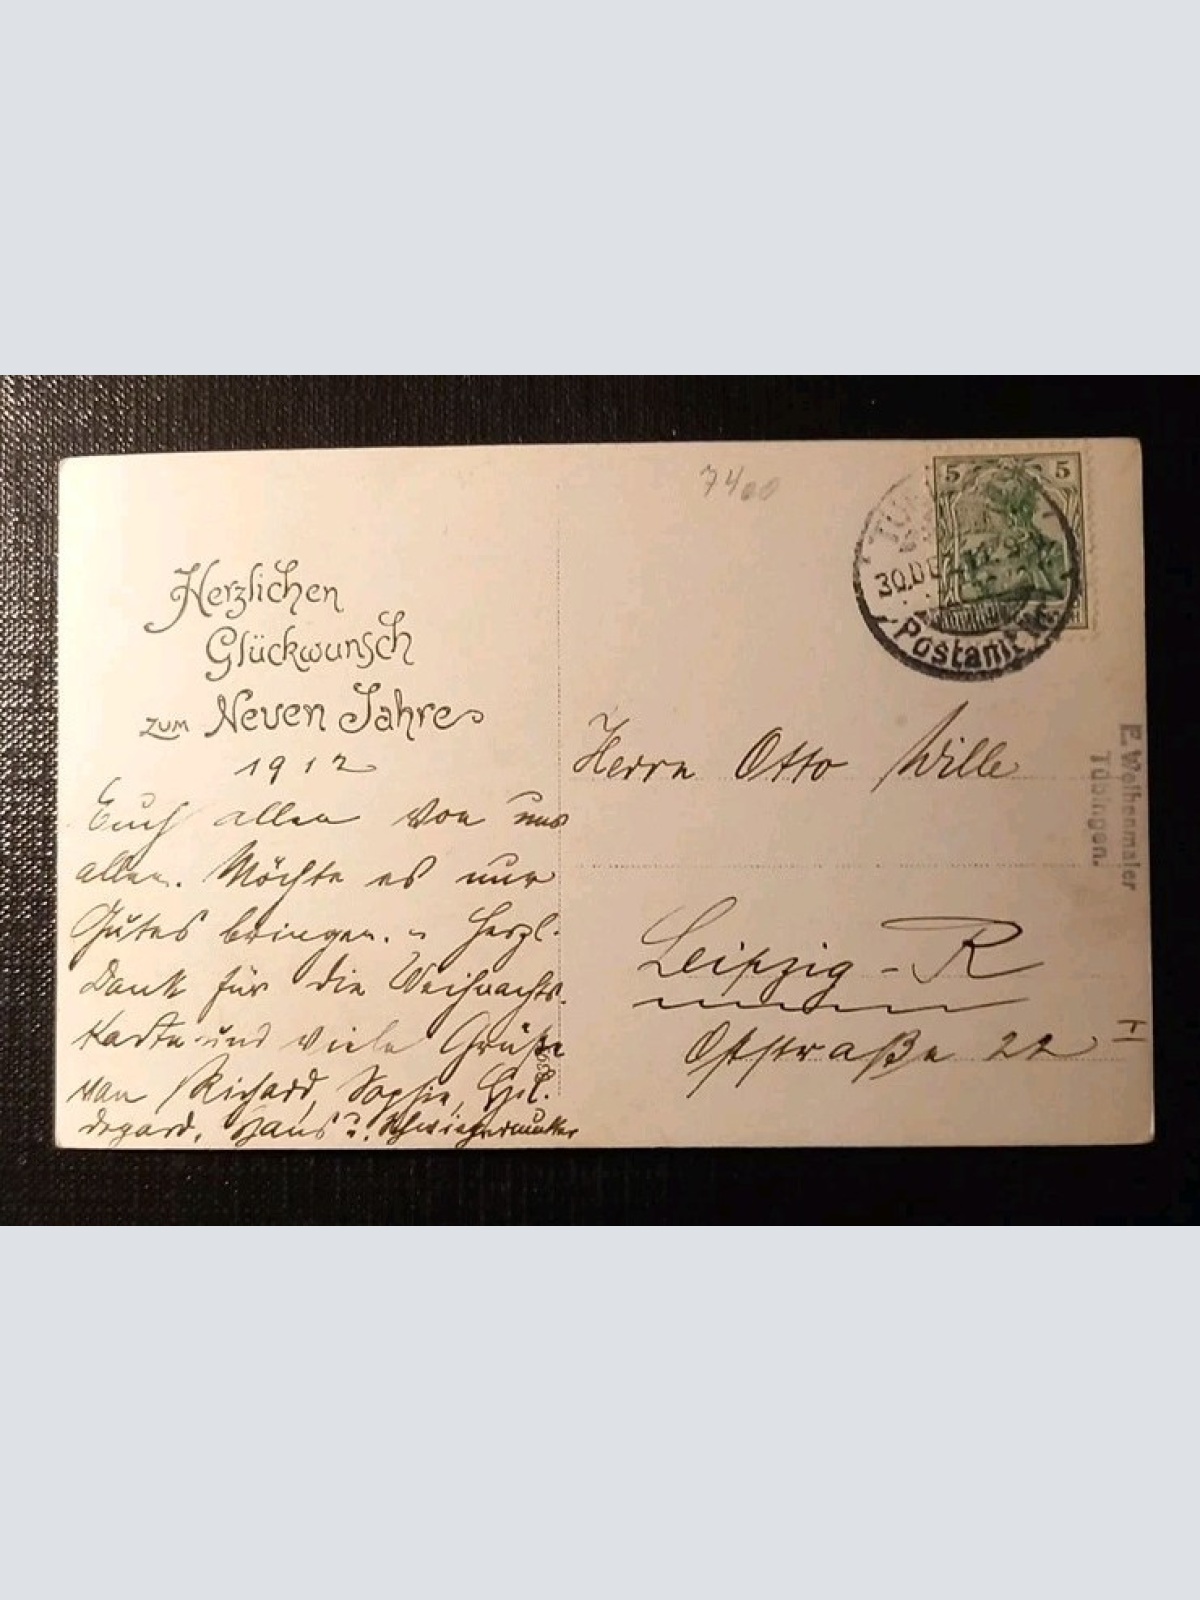 7400
5 5
30.DE
Postamt
Herzlichen
Glückwunsch
zum Neuen Jahre
1912
Euch allen von uns
allen. Möchte es nur
Gutes bringen. Herzl.
Dank für die Weihnachts-
karte und viele Grüße
von Richard, Sophie, Hil-
degard, Hans u. Schwiegermutter
Herrn Otto Wille
Leipzig - R
Oststraße 22 I
E. Weihenmaier
Tübingen.